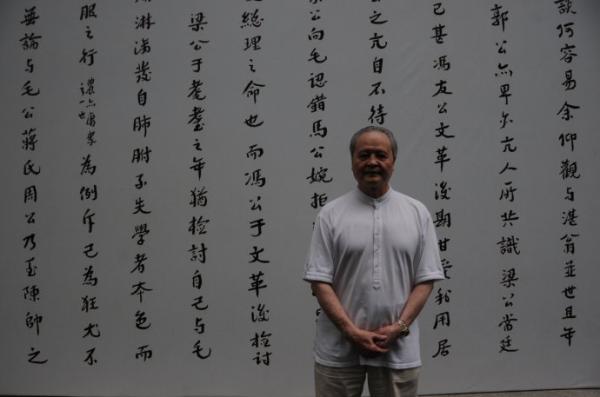 何容易余仰觀與湛翁並世且年
郭公亦卑尔亢人所共識梁公當廷
己甚馮友公文革後期甘受我用居
公之亢自不待
公向毛認錯馬公婉拒
總理之命也而馮公于文革後檢討
梁公于耄耋之年猶檢討自己与毛
淋漓發自肺腑不失學者本色而
服之行為例斥己為狂尤不
無論与毛公蔣氏周公乃至陳帥之